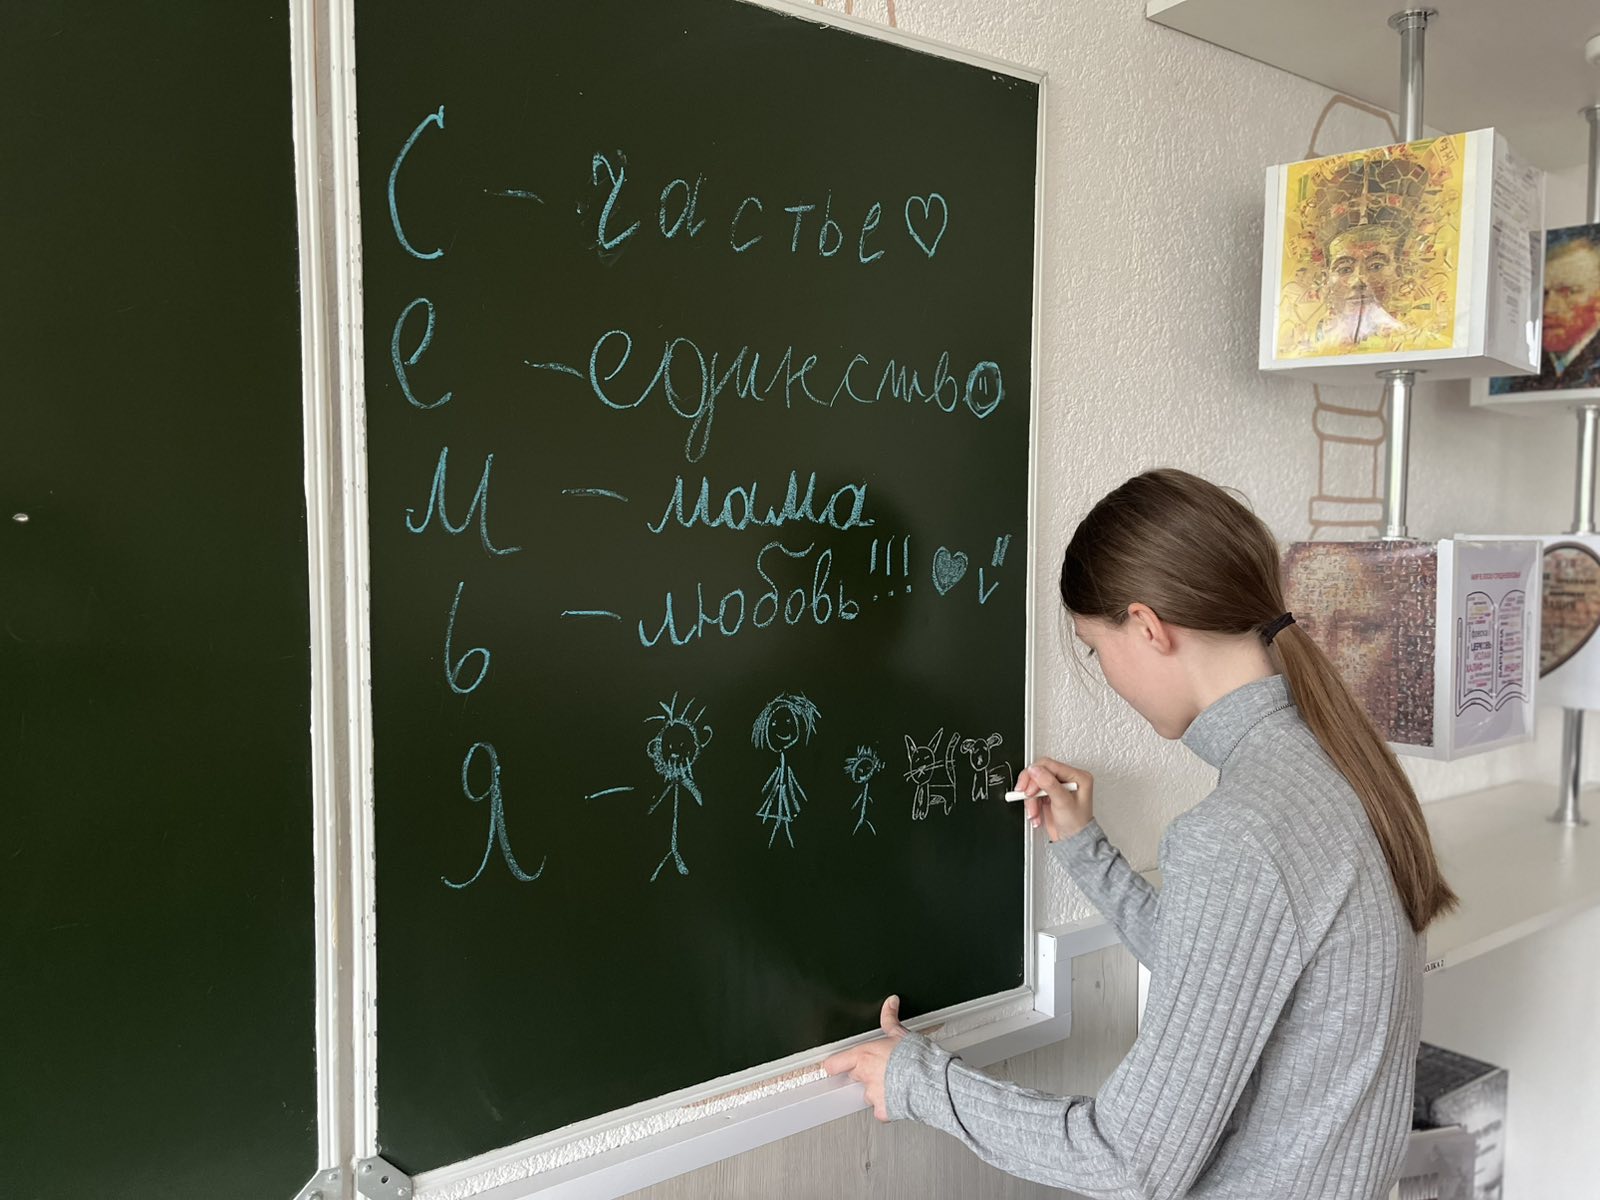 С - частье
Е - единство
М - мама
Ь - любовь!!!
Я -
ЦЕРКОВЬ